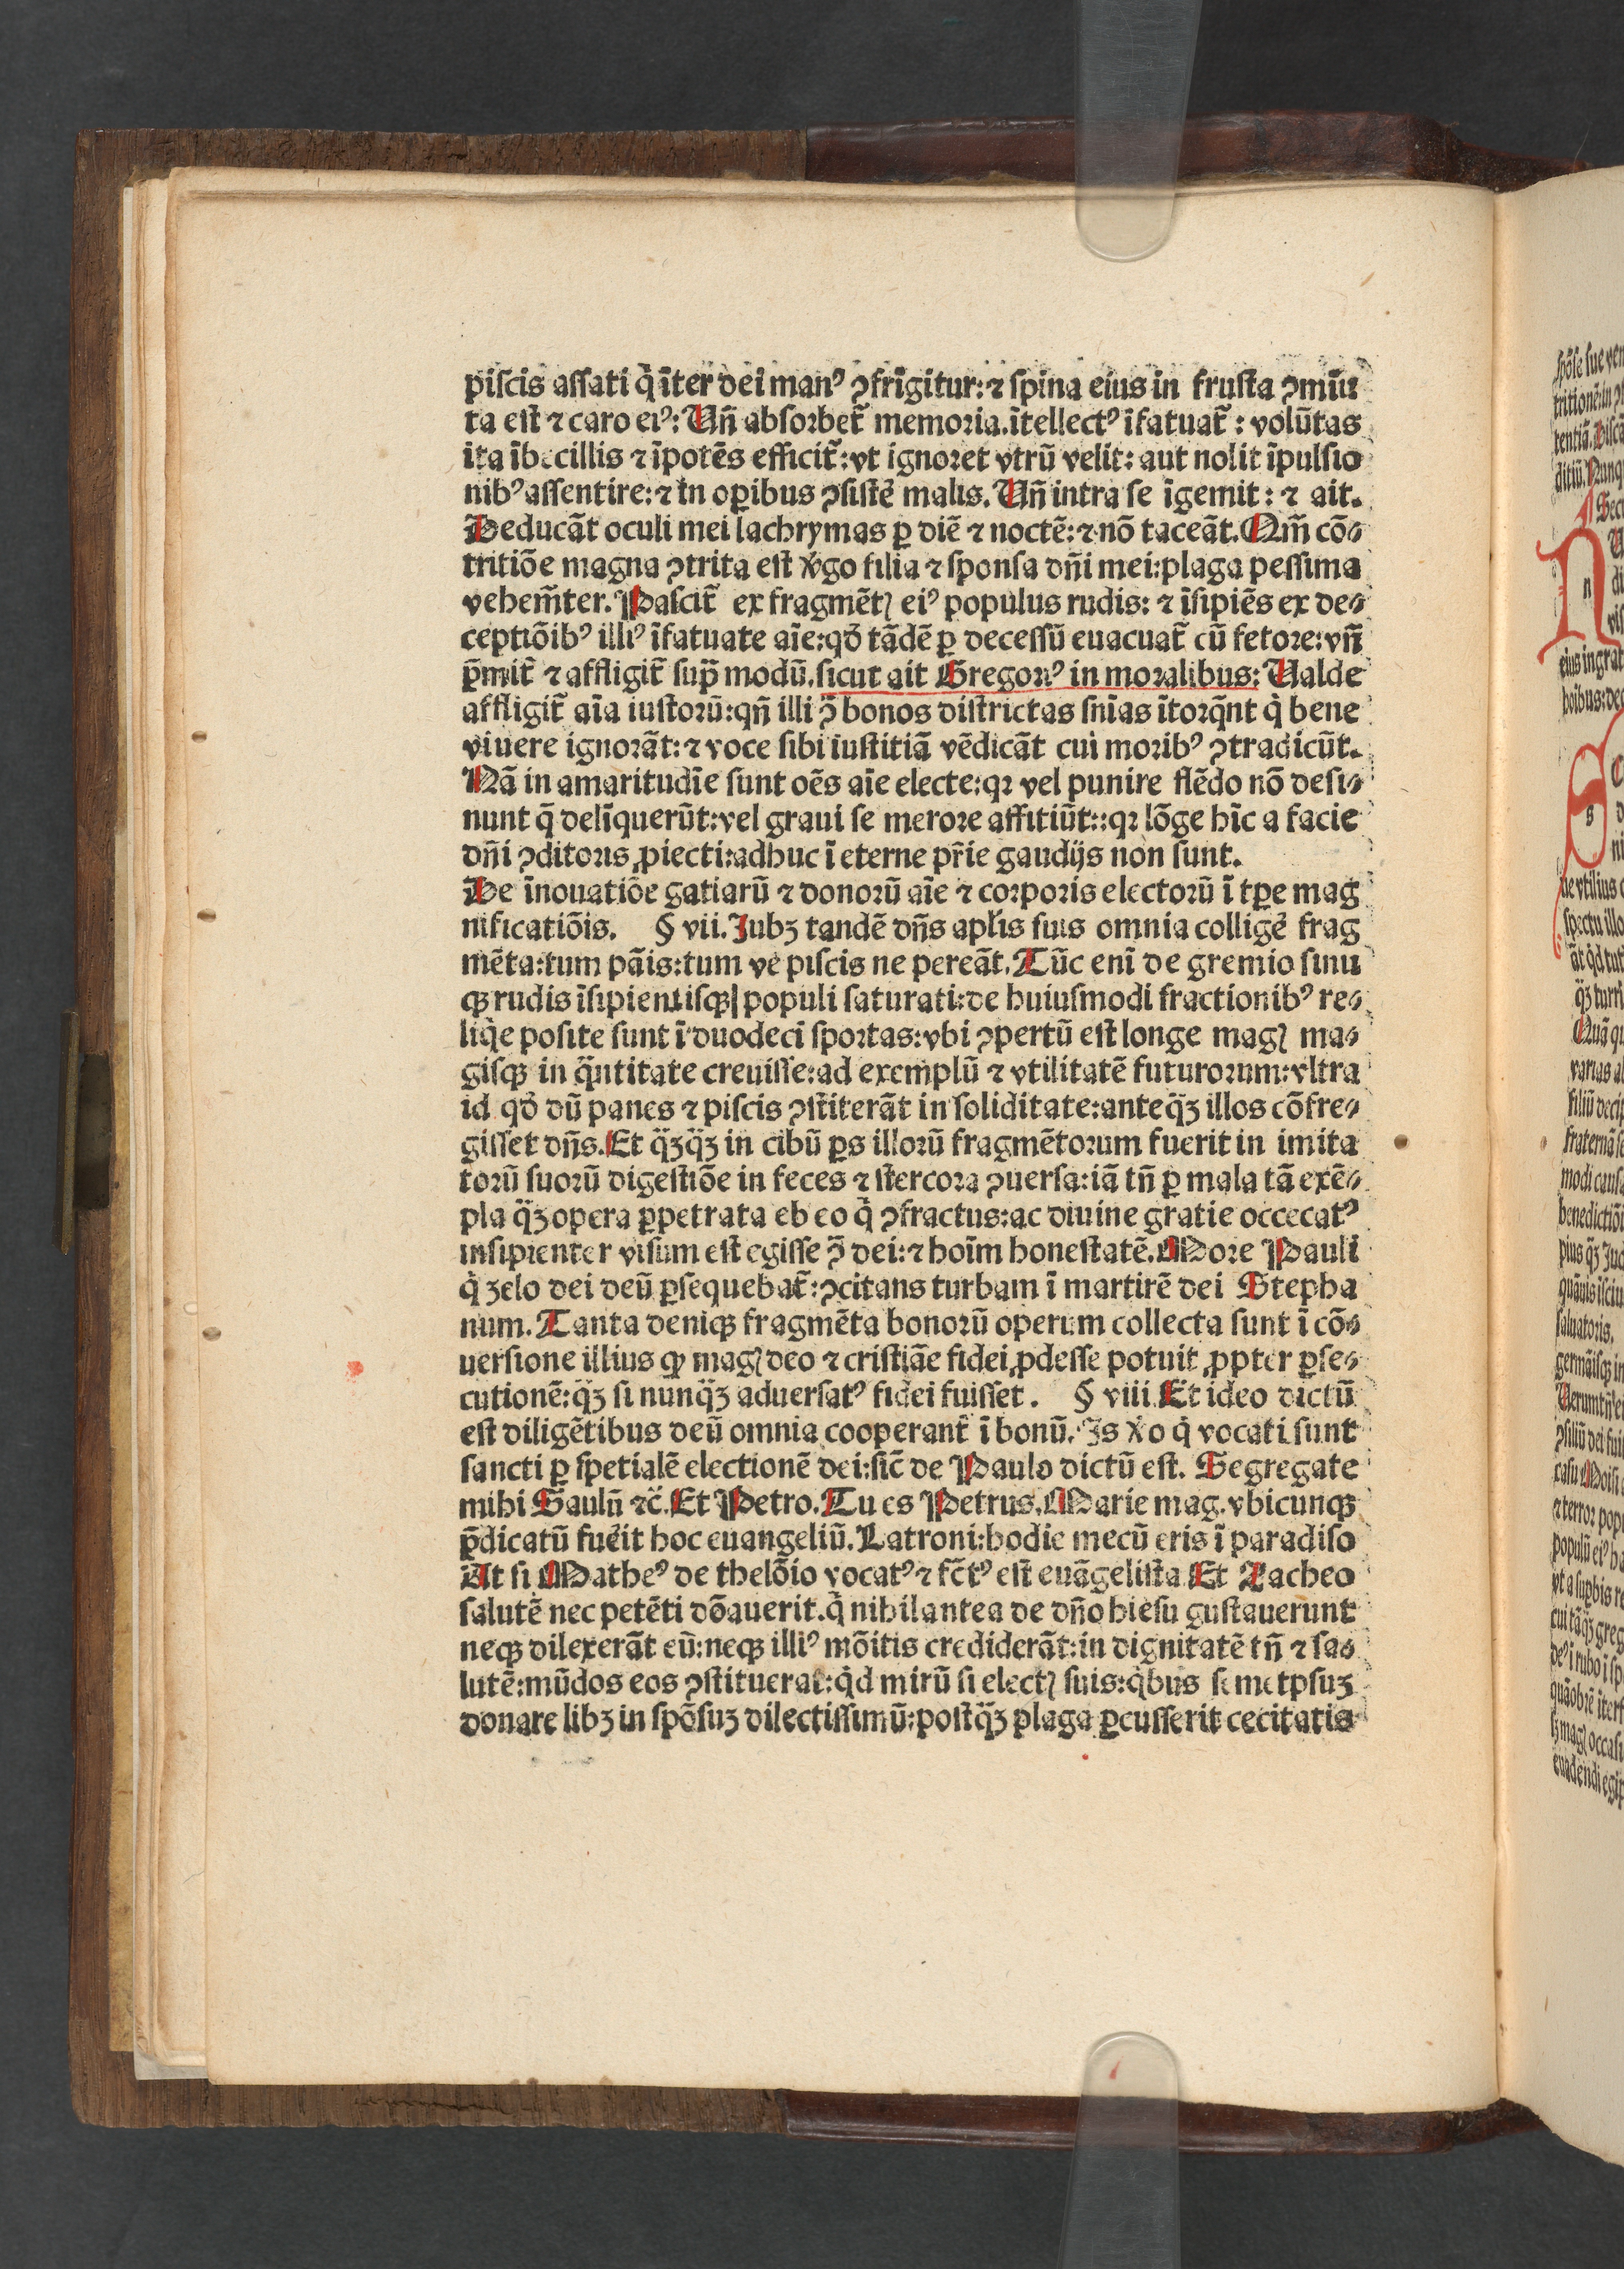 piſcis aſſati q̇ ĩter dei manꝰ ꝯfrĩgitur: ⁊ ſpina eius in fruſta ꝯmĩu
ta eſt ⁊ caro eiꝰ: Un̄ abſorbet̃ memoria. ĩtellectꝰ ĩfatuat̃: volũtas
ita ĩbecillis ⁊ ĩpotẽs efficit̃: vt ignoret vtrũ velit: aut nolit ĩpulſio
nibꝰ aſſentire: ⁊ in oꝑibus ꝯſiſtẽ malis. Un̄ intra ſe ĩgemit: ⁊ ait.
Deducãt oculi mei lachrymas ꝑ diẽ ⁊ noctẽ: ⁊ nõ taceãt. Qm̃ cõ⸗
tritiõe magna ꝯtrita eſt v̓go filia ⁊ ſponſa dn̄i mei: plaga peſſima
vehem̃ter. Paſcit̃ ex fragmẽtꝭ eiꝰ populus rudis: ⁊ ĩſipiẽs ex de⸗
ceptiõibꝰ illiꝰ ĩfatuate aĩe: qđ tãdẽ ꝑ deceſſũ euacuat̃ cũ fetore: vn̄
p̄mit̃ ⁊ affligit̃ ſup̃ modũ. ſicut ait Gregoriꝰ in moralibus: Ualde
affligit̃ aĩa iuſtorũ: qn̄ illi ꝯ̃ bonos diſtrictas ſñias ĩtorq̃nt q̇ bene
viuere ignorãt: ⁊ voce ſibi iuſtitiã vẽdicãt cui moribꝰ ꝯtradicũt.
Nã in amaritudĩe ſunt oẽs aĩe electe: qꝛ vel punire flẽdo nõ deſi⸗
nunt q̃ delĩquerũt: vel graui ſe merore affitiũt:: qꝛ lõge hĩc a facie
dn̄i ꝯditoris ꝓiecti: adhuc ĩ eterne pr̃ie gaudijs non ſunt.
De ĩnouatiõe gatiarũ ⁊ donorũ aĩe ⁊ corporis electorũ ĩ tꝑe mag
nificatiõis. § vii. Jubꝫ tandẽ dn̄s apl̃is ſuis omnia colligẽ frag
mẽta: tum pãis: tum ve piſcis ne pereãt. Tũc enĩ de gremio ſinu
qꝫ rudis ĩſipientiſqꝫ populi ſaturati: de huiuſmodi fractionibꝰ re⸗
liq̇e poſite ſunt ĩ duodecĩ ſportas: vbi ꝯpertũ eſt longe magꝭ ma⸗
giſqꝫ in q̃ntitate creuiſſe: ad exemplũ ⁊ vtilitatẽ futurorum: vltra
id qđ dũ panes ⁊ piſcis ꝯſtiterãt in ſoliditate: anteq̃ꝫ illos cõfre⸗
giſſet dn̄s. Et q̃ꝫq̃ꝫ in cibũ ꝑs illorũ fragmẽtorum fuerit in imita
torũ ſuorũ digeſtiõe in feces ⁊ ſtercora ꝯuerſa: iã tn̄ ꝑ mala tã exẽ⸗
pla q̃ꝫ opera ꝑpetrata eb eo q̇ ꝯfractus: ac diuine gratie occecatꝰ
inſipienter viſum eſt egiſſe ꝯ̃ dei: ⁊ hoĩm honeſtatẽ. More Pauli
q̇ ꝫelo dei deũ ꝑſequebat̃: ꝯcitans turbam ĩ martirẽ dei Stepha
num. Tanta deniqꝫ fragmẽta bonorũ operum collecta ſunt ĩ cõ⸗
uerſione illius qꝫ magꝭ deo ⁊ criſtiãe fidei ꝓdeſſe potuit ꝓpter ꝑſe⸗
cutionẽ: q̃ꝫ ſi nunq̃ꝫ aduerſatꝰ fidei fuiſſet. § viii. Et ideo dictũ
eſt diligẽtibus deũ omnia cooperant̃ ĩ bonũ. Js v̓o q̇ vocati ſunt
ſancti ꝑ ſpetialẽ electionẽ dei: ſic̃ de Paulo dictũ eſt. Segregate
mihi Saulũ ⁊c̃. Et Petro. Tu es Petrus. Marie mag. vbicunqꝫ
p̄dicatũ fuẽit hoc euangeliũ. Latroni: hodie mecũ eris ĩ paradiſo
At ſi Matheꝰ de thelõio vocatꝰ ⁊ fc̃tꝰ eſt euãgeliſta Et Zacheo
ſalutẽ nec petẽti dõauerit. q̇ nihil antea de dn̄o hieſu guſtauerunt
neqꝫ dilexerãt eũ: neqꝫ illiꝰ mõitis crediderãt: in dignitatẽ tn̄ ⁊ ſa⸗
lutẽ: mũdos eos ꝯſtituerat: q̇d mirũ ſi electꝭ ſuis: q̇bus ſemetpſuꝫ
donare libꝫ in ſpõſuꝫ dilectiſſimũ: poſtq̃ꝫ plaga ꝑcuſſerit cecitatis